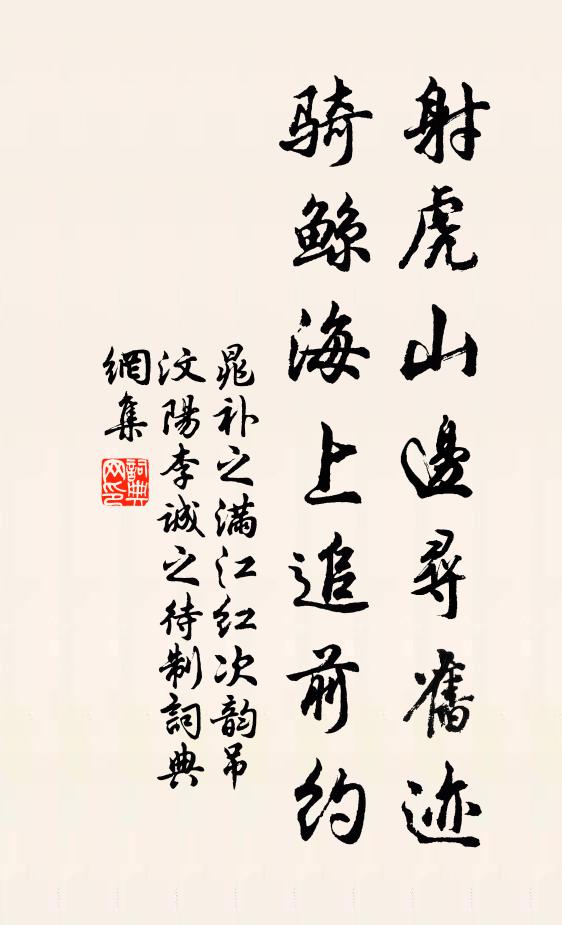 射虎山邊尋舊迹
骑鲸海上追前约
晁补之满江红次韵吊
汶陽李诚之待制詞典
網集
詞典網印